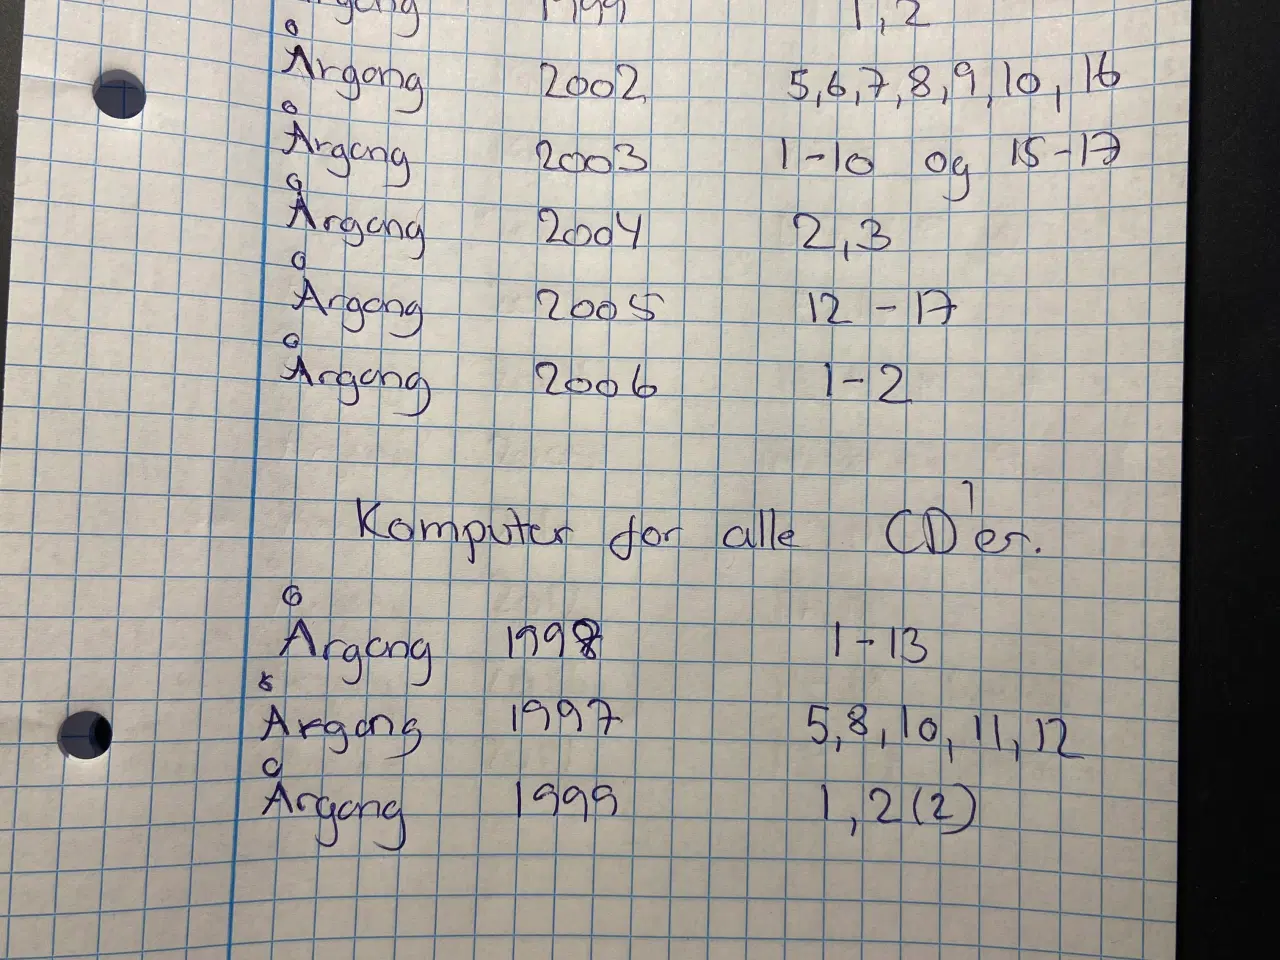 Årgang 1999 1,2
Årgang 2002 5,6,7,8,9,10,16
Årgang 2003 1-10 og 15-17
Årgang 2004 2,3
Årgang 2005 12-17
Årgang 2006 1-2
Komputer for alle CD'er.
Årgang 1998 1-13
Årgang 1997 5,8,10,11,12
Årgang 1999 1,2(2)